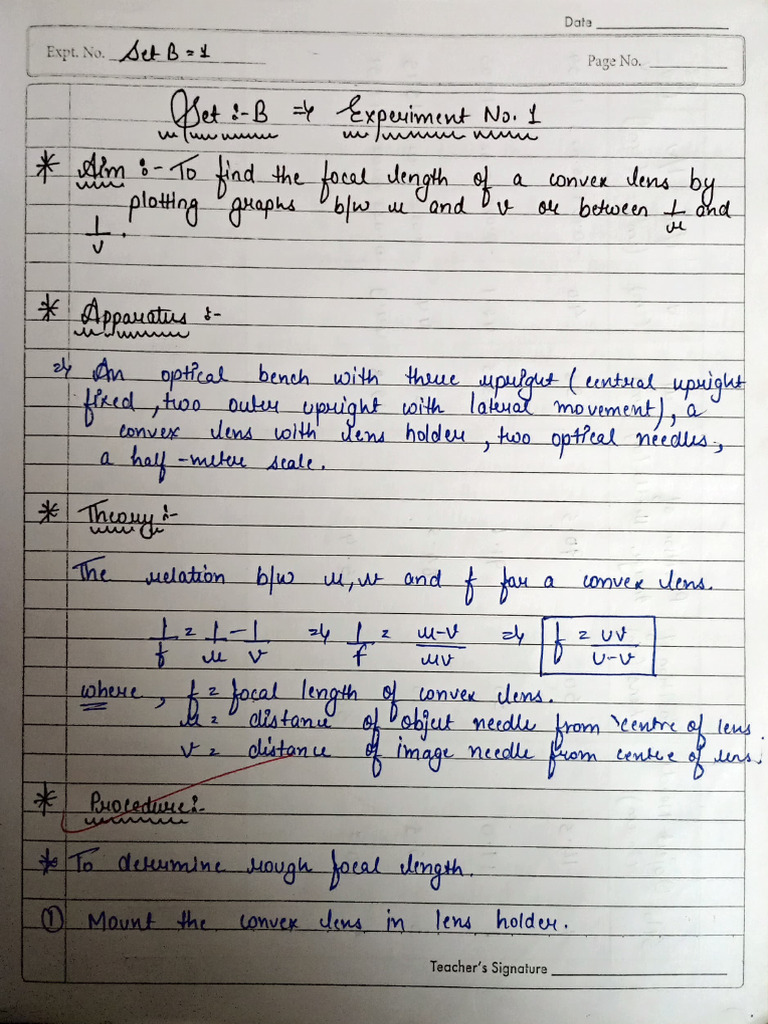 Date
Expt. No. Set B = 1
Page No.
Set :- B => Experiment No. 1
* Aim :- To find the focal length of a convex lens by
plotting graphs b/w u and v or between 1/u and
1/v.
* Apparatus :-
=> An optical bench with three upright (central upright
fixed, two outer upright with lateral movement), a
convex lens with lens holder, two optical needles,
a half-meter scale.
* Theory :-
The relation b/w u, v and f for a convex lens.
1/f = 1/u - 1/v => 1/f = u-v/uv => f = uv/u-v
where, f = focal length of convex lens.
u = distance of object needle from centre of lens.
v = distance of image needle from centre of lens.
* Procedure :-
* To determine rough focal length.
① Mount the convex lens in lens holder.
Teacher's Signature